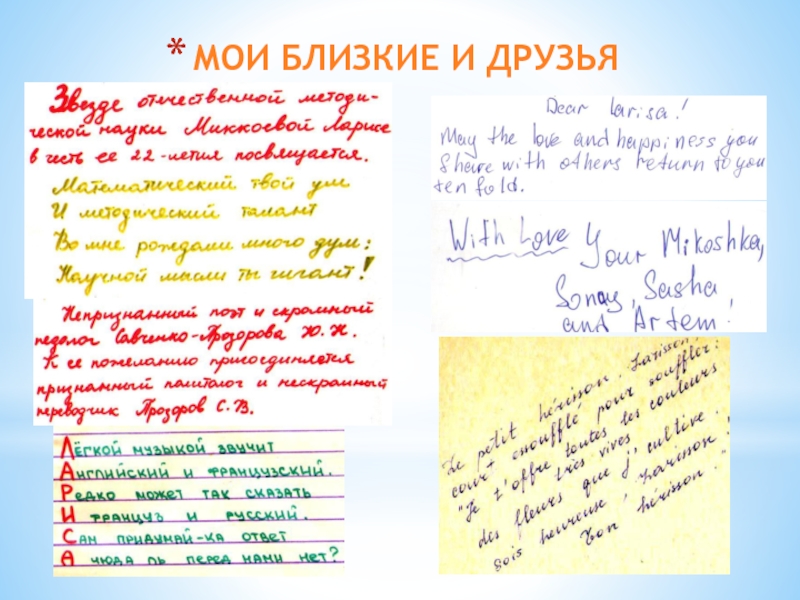 * МОИ БЛИЗКИЕ И ДРУЗЬЯ
Звезде отечественной методи-
ческой науки Миккоевой Ларисе
в честь ее 22-летия посвящается.
Математический твой ум
И методический талант
Во мне рождали много дум:
Научной мысли ты гигант!
Непризнанный поэт и скромный
педолог Савченко-Прозорова Ю. Н.
К ее пожеланию присоединяется
признанный и нескромный
переводчик Прозоров С. В.
ЛЁГКОЙ МУЗЫКОЙ ЗВУЧИТ
АНГЛИЙСКИЙ И ФРАНЦУЗСКИЙ.
РЕДКО МОЖЕТ ТАК СКАЗАТЬ
И ФРАНЦУЗ И РУССКИЙ.
САМ ПРИДУМАЙ-КА ОТВЕТ
А ЧЮДА ЛЬ ПЕРЕД НАМИ НЕТ?
Dear Larisa!
May the love and happiness you
Share with others return to you
ten fold.
With Love Your Mikoshka,
Sasha
and Artem!
Le petit hérisson Larisson
court essoufflé pour souffler:
"Je t'offre toutes les couleurs
très vives
des fleurs que j'cultive.
Sois heureuse, Larisson!
Ton hérisson."